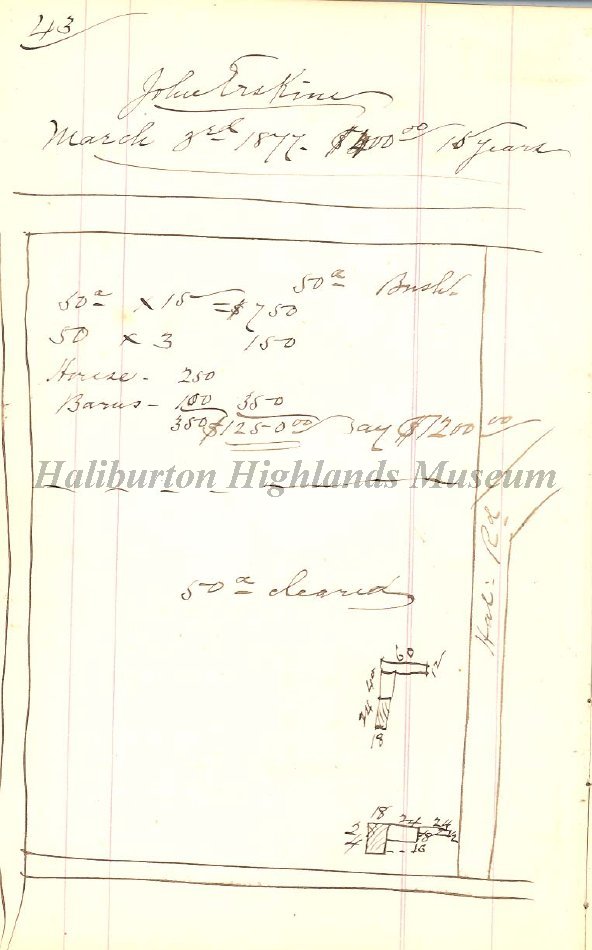 43
John Erskine
March 3rd 1877- $400 00 15 years
50a Bush
50a x 15 = $750
50 x 3 150
House - 250
Barns - 100 350
350 $1250 00 Say $1200 00
Haliburton Highlands Museum
Hal: Rd
50a cleared
60
12
40
24
18
18 24 24
24 18 12
16